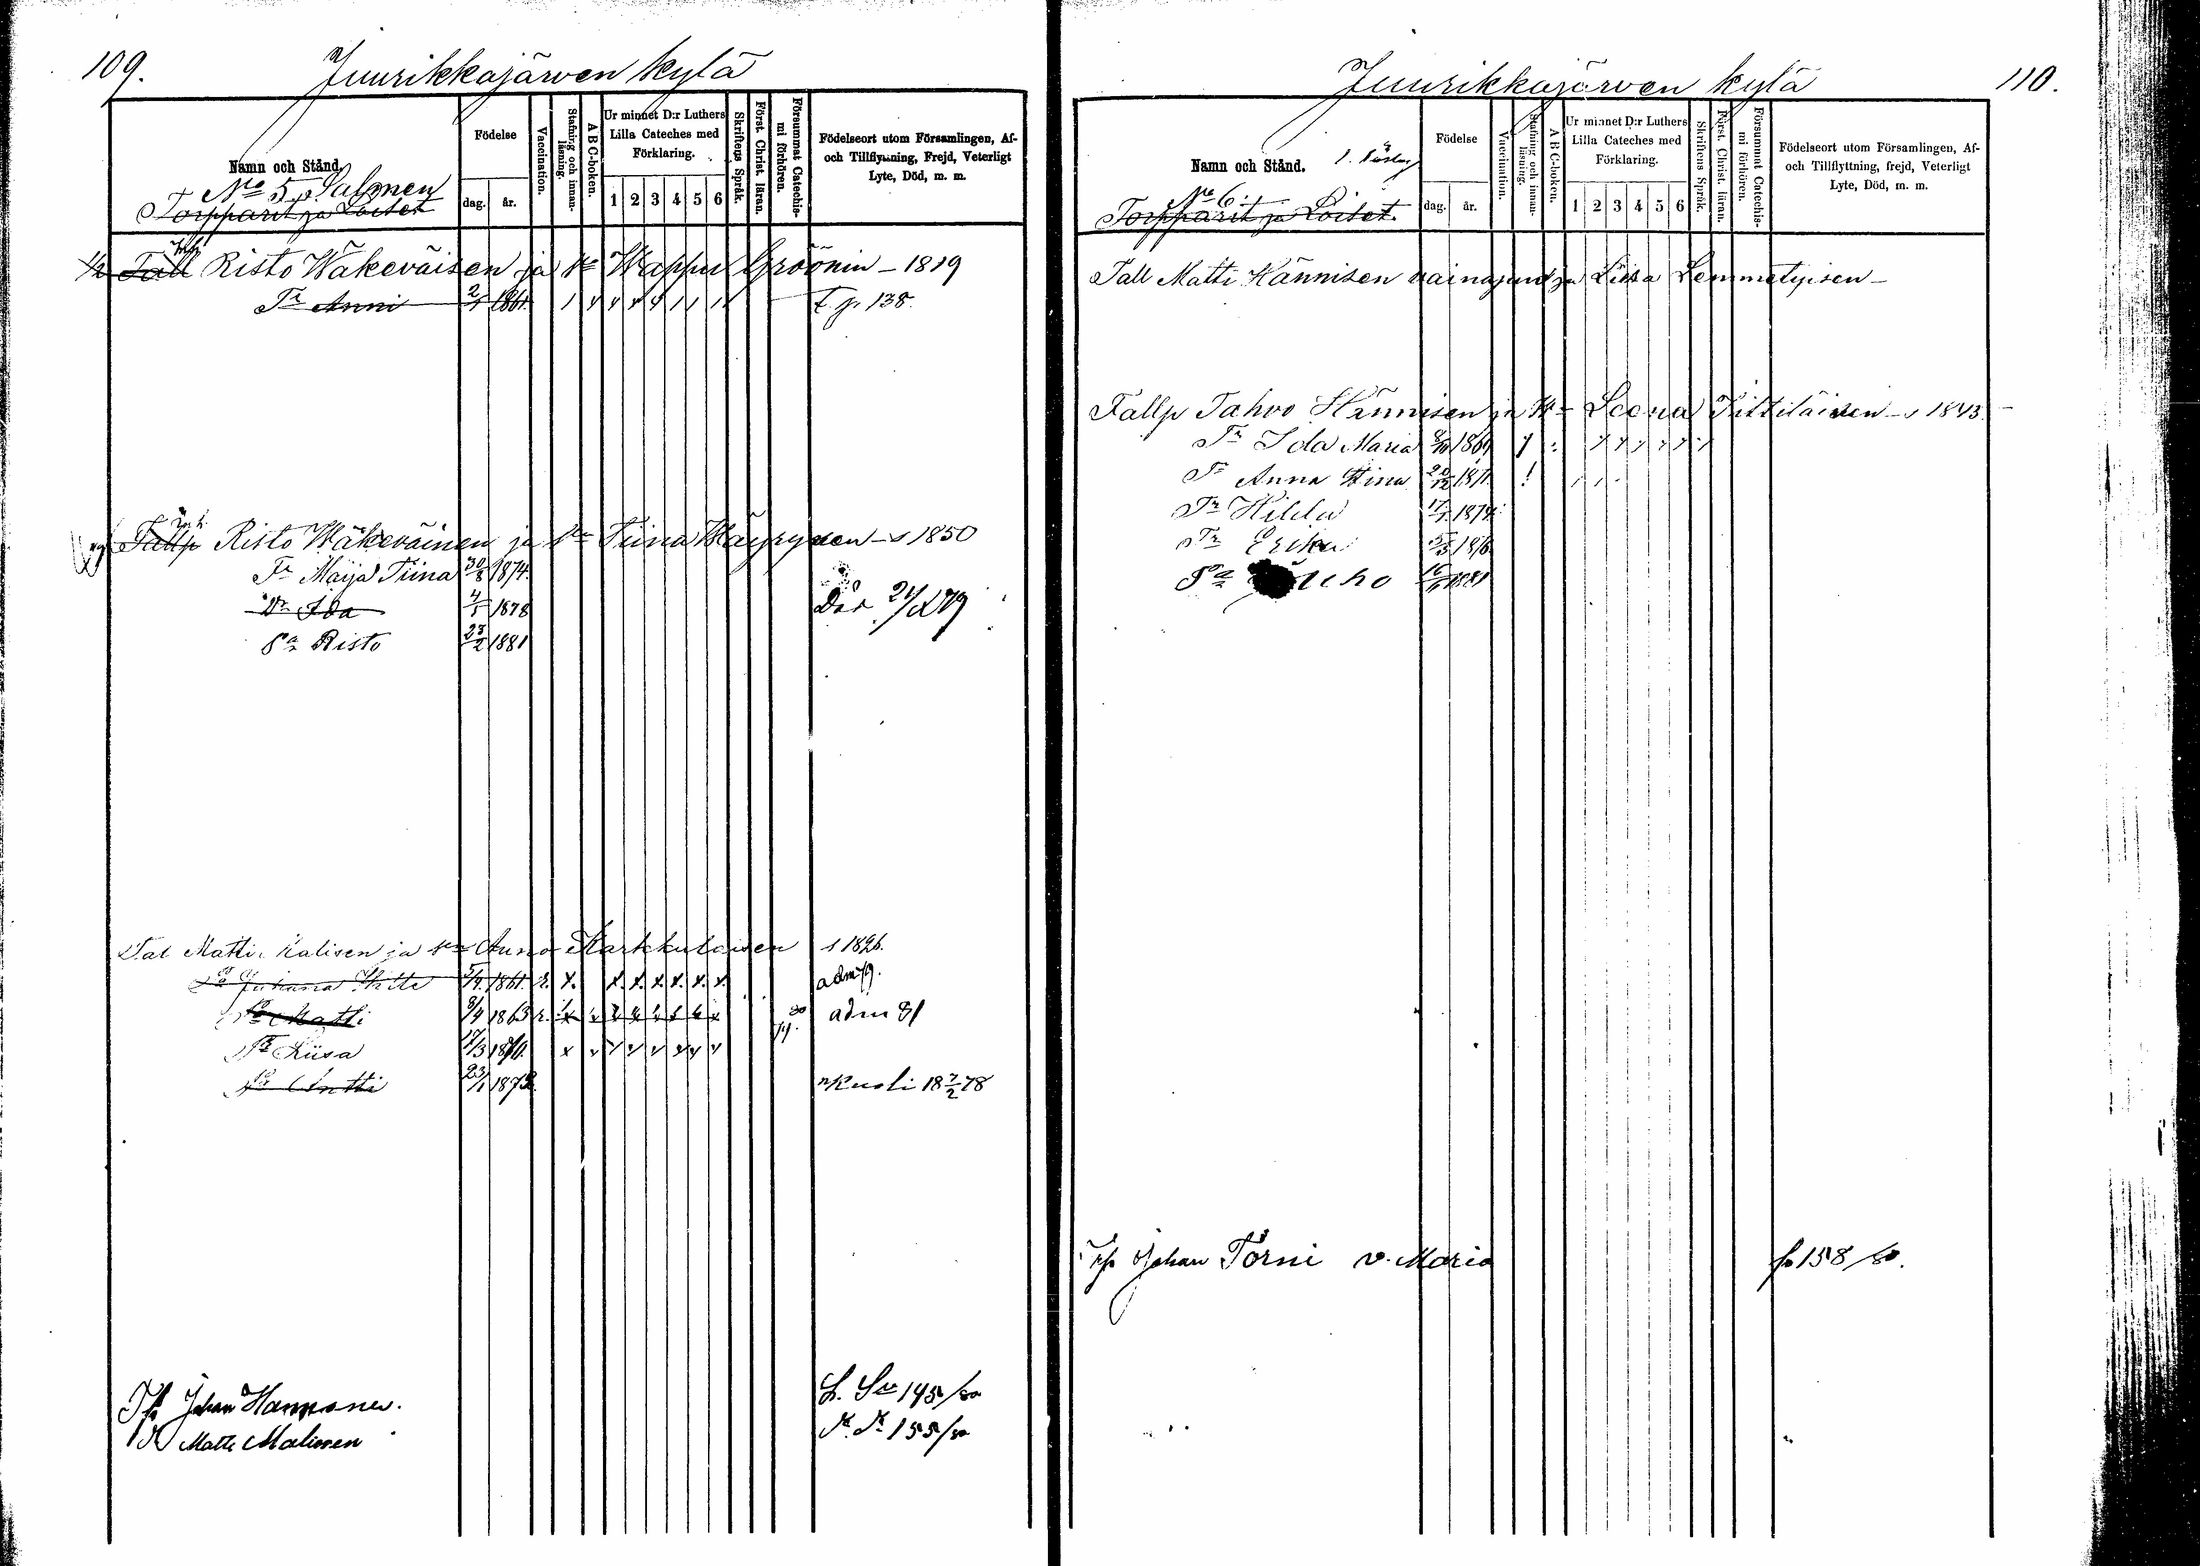 109.
Juurikkajärven kylä
Namn och Stånd.
Födelse
dag.
år.
Vaccination.
Stafning och innan-läsning.
A B C-boken.
Ur minnet D:r Luthers
Lilla Cateches med
Förklaring.
1 2 3 4 5 6
Skriftens Språk.
Först. Christ. läran.
Försummat Catechis-mi förhören.
Födelseort utom Församlingen, Af-
och Tillflyttning, Frejd, Veterligt
Lyte, Död, m. m.
No 5 Salmen
Torpparit ja Loiset
1/2 Tall Risto Wäkeväisen ja Wappu Gröönin - 1819
Tr Anni 2/1 1861 p. 138
Tallp Risto Wäkeväinen ja Tiina Wäyrynen - s 1850
Tr Maija Tiina 30/8 1874
Tr Ida 4/5 1878 Död 24/2 79
Pa Risto 23/2 1881
Tal Matti Kalisen ja Anna Karkkulaisen s 1826.
1861 adm 79.
Pa Matti 8/4 1863 adm 81
Tr Liisa 17/3 1870
Pa Antti 23/1 1873 kuoli 18 7/2 78
Johan Hamponen. 145/80
Matti Malinen 155/80
Juurikkajärven kylä
110.
Namn och Stånd.
Födelse
dag.
år.
Vaccination.
Stafning och innan-läsning.
A B C-boken.
Ur minnet D:r Luthers
Lilla Cateches med
Förklaring.
1 2 3 4 5 6
Skriftens Språk.
Först. Christ. läran.
Försummat Catechis-mi förhören.
Födelseort utom Församlingen, Af-
och Tillflyttning, frejd, Veterligt
Lyte, Död, m. m.
No 6.
Torpparit ja Loiset.
Tall Matti Hännisen ja Liisa Lemmetyisen -
Tallp Tahvo Hännisen ja Leena Tittiläinen - s 1843 -
Tr Ida Maria 1869
Tr Anna Stina 20/12 1871
Tr Hilda 17/1 1874
Tr Erika 5/3 1876
Pa Juho 1881
Johan Törni v. Maria p 158/80.